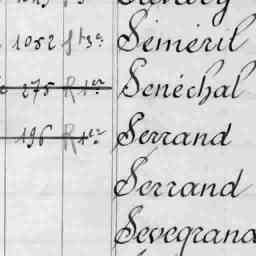 1052 Séméril
275 R 1er Senéchal
196 R 1er Serrand
Serrand
Sevegrand